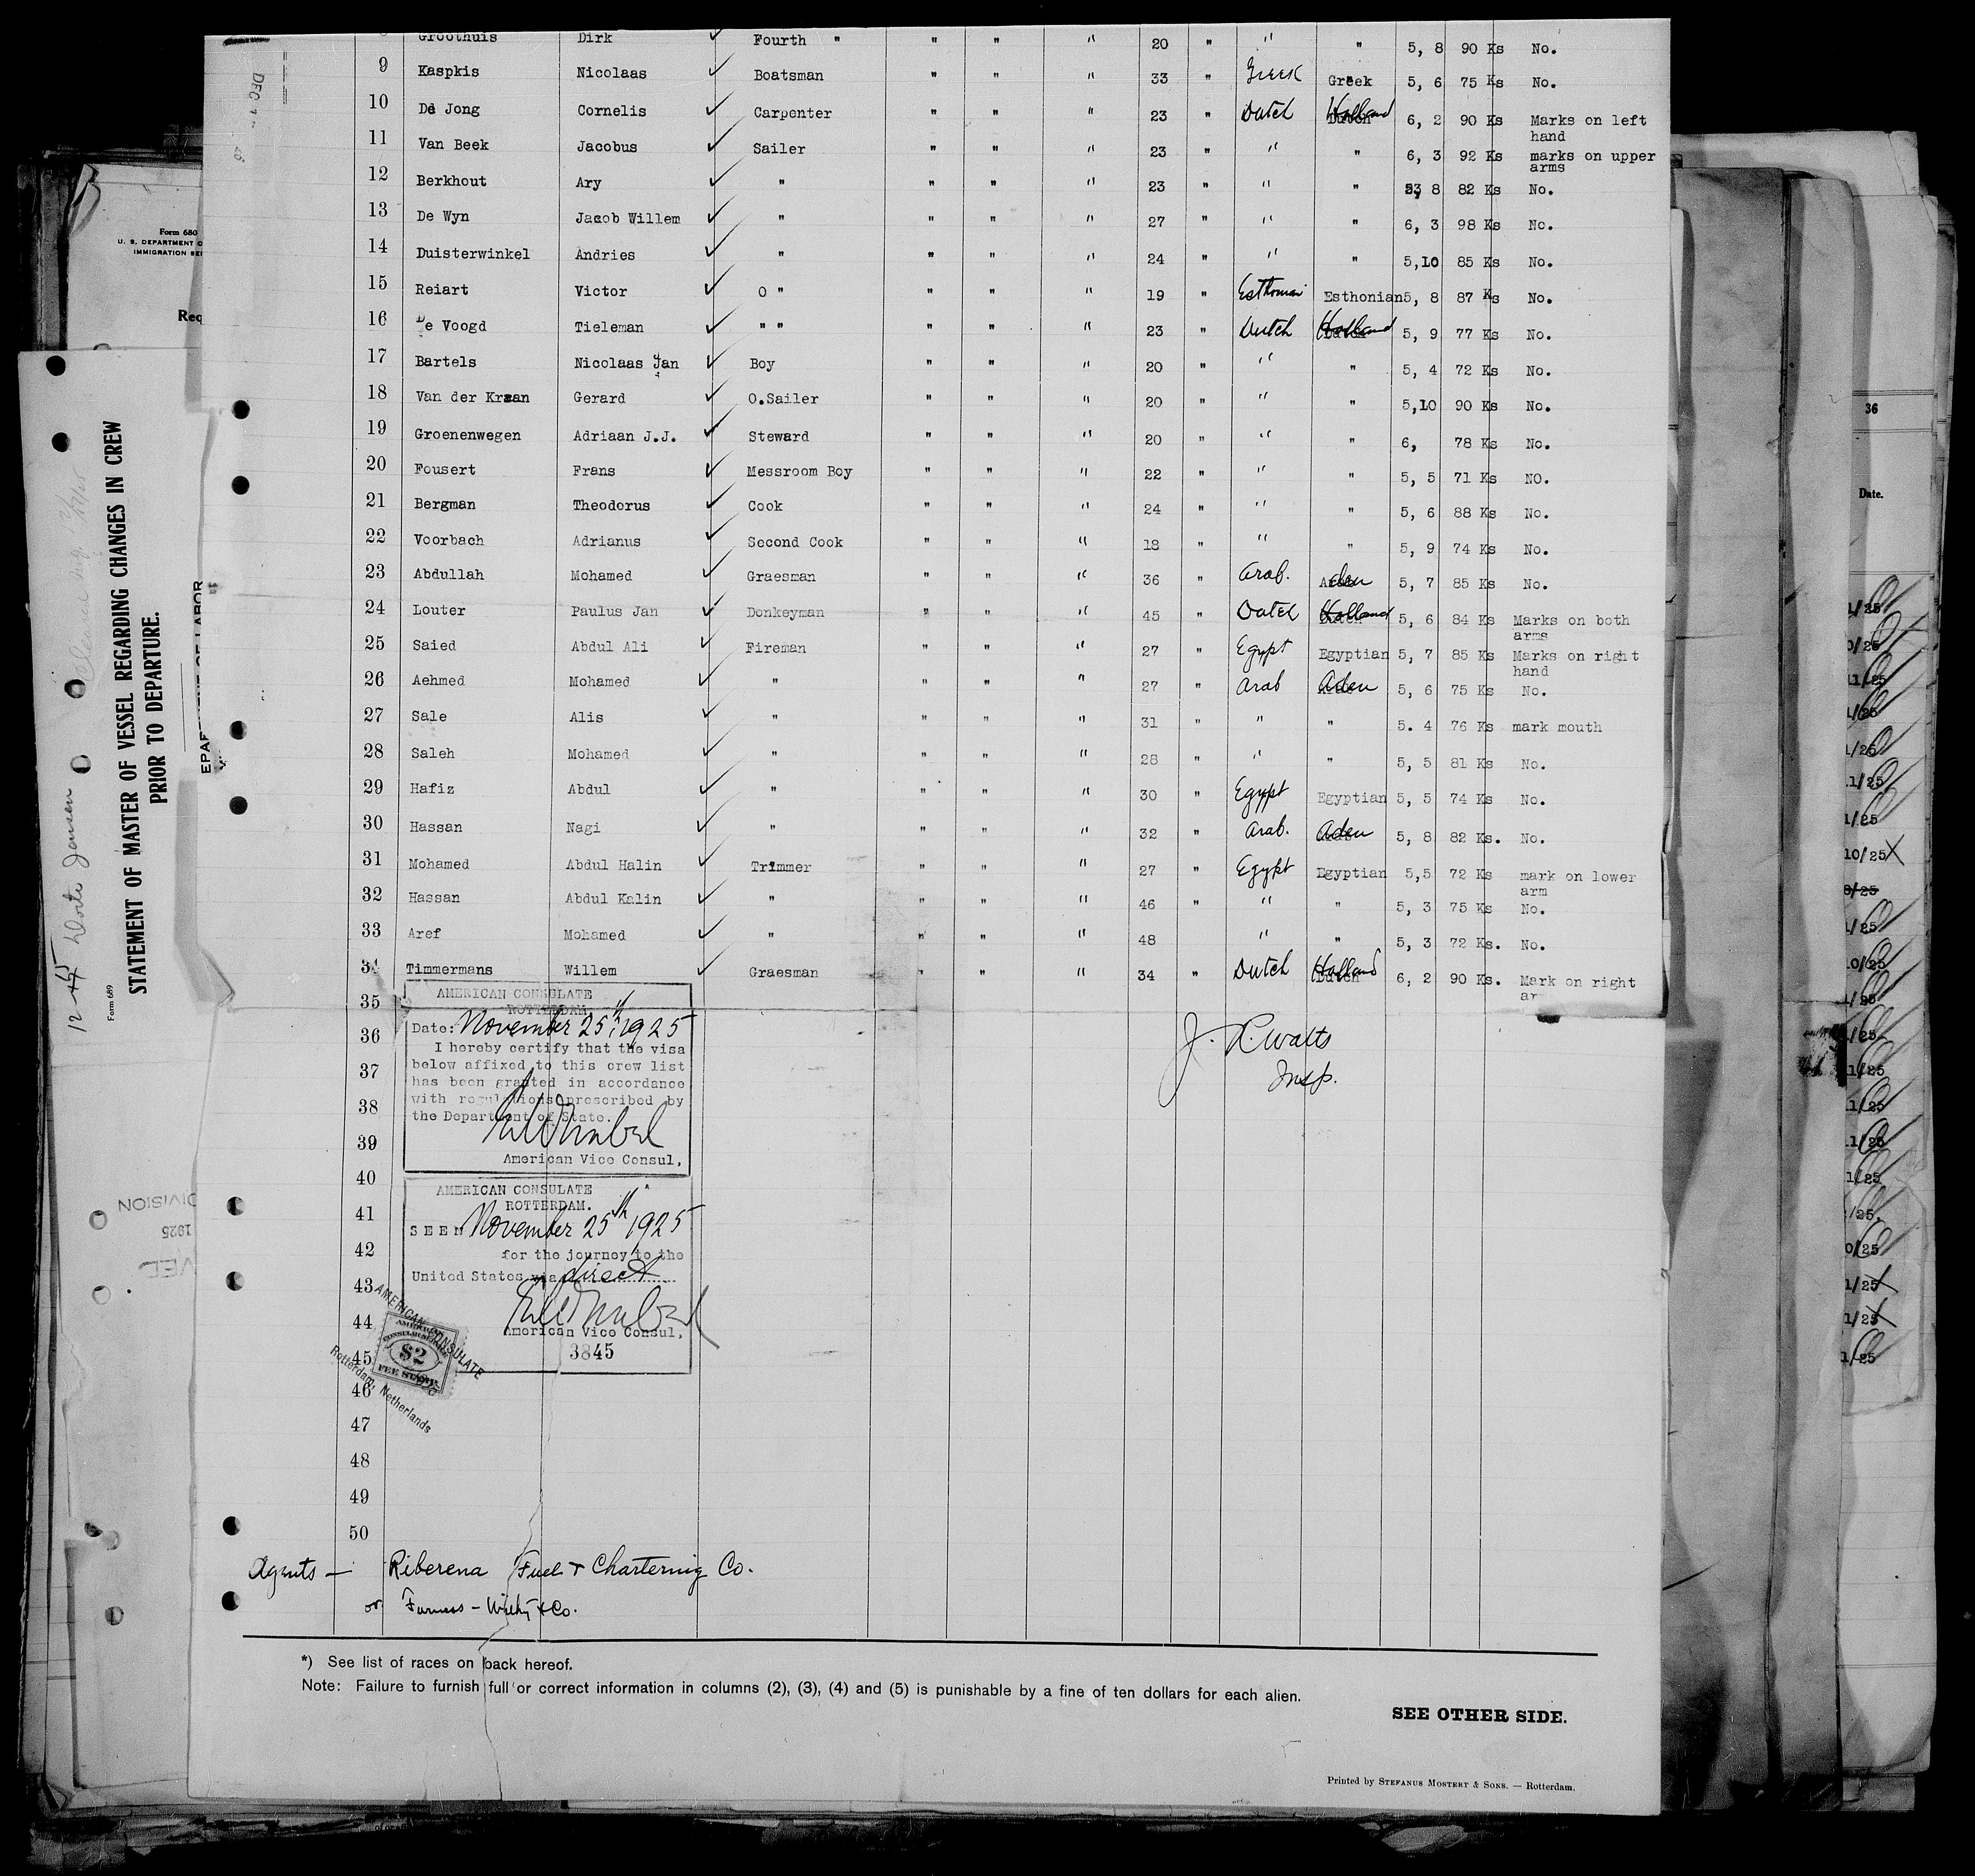 Groothuis Dirk ✓ Fourth " " " " 20 " " " 5, 8 90 Ks No.
9 Kaspkis Nicolaas ✓ Boatsman " " " 33 " Greek Greek 5, 6 75 Ks No.
10 De Jong Cornelis ✓ Carpenter " " " 23 " Dutch Holland 6, 2 90 Ks Marks on left
hand
11 Van Beek Jacobus ✓ Sailer " " " 23 " " " 6, 3 92 Ks marks on upper
arms
12 Berkhout Ary ✓ " " " " 23 " " " 8 82 Ks No.
13 De Wyn Jacob Willem ✓ " " " " 27 " " " 6, 3 98 Ks No.
14 Duisterwinkel Andries ✓ " " " " 24 " " " 5,10 85 Ks No.
15 Reiart Victor ✓ O " " " " 19 " Esthonian 5, 8 87 Ks No.
16 De Voogd Tieleman ✓ " " " " " 23 " Dutch Holland 5, 9 77 Ks No.
17 Bartels Nicolaas Jan ✓ Boy " " " 20 " " " 5, 4 72 Ks No.
18 Van der Kraan Gerard ✓ O.Sailer " " " 20 " " " 5,10 90 Ks No.
19 Groenenwegen Adriaan J.J. ✓ Steward " " " 20 " " " 6, 78 Ks No.
20 Fousert Frans ✓ Messroom Boy " " " 22 " " " 5, 5 71 Ks NO.
21 Bergman Theodorus ✓ Cook " " " 24 " " " 5, 6 88 Ks No.
22 Voorbach Adrianus ✓ Second Cook " " " 18 " " " 5, 9 74 Ks No.
23 Abdullah Mohamed ✓ Graesman " " " 36 " Arab. Aden 5, 7 85 Ks No.
24 Louter Paulus Jan ✓ Donkeyman " " " 45 " Dutch Holland 5, 6 84 Ks Marks on both
arms
25 Saied Abdul Ali ✓ Fireman " " " 27 " Egypt Egyptian 5, 7 85 Ks Marks on right
hand
26 Aehmed Mohamed ✓ " " " " 27 " Arab Aden 5, 6 75 Ks No.
27 Sale Alis ✓ " " " " 31 " " " 5. 4 76 Ks mark mouth
28 Saleh Mohamed ✓ " " " " 28 " " " 5, 5 81 Ks No.
29 Hafiz Abdul ✓ " " " " 30 " Egypt Egyptian 5, 5 74 Ks No.
30 Hassan Nagi ✓ " " " " 32 " Arab. Aden 5, 8 82 Ks. No.
31 Mohamed Abdul Halin ✓ Trimmer " " " 27 " Egypt Egyptian 5,5 72 Ks mark on lower
arm
32 Hassan Abdul Kalin ✓ " " " " 46 " " " 5, 3 75 Ks No.
33 Aref Mohamed ✓ " " " " 48 " " " 5, 3 72 Ks. No.
34 Timmermans Willem ✓ Graesman " " " 34 " Dutch Holland 6, 2 90 Ks. Mark on right
35
36
37
38
39
40
41
42
43
44
45
46
47
48
49
50
AMERICAN CONSULATE
ROTTERDAM.
Date: November 25th, 1925
I hereby certify that the visa
below affixed to this crew list
has been granted in accordance
with regulations prescribed by
the Department of State.
American Vice Consul,
AMERICAN CONSULATE
ROTTERDAM.
SEEN November 25th 1925
for the journey to the
United States via direct
American Vice Consul,
3845
AMERICAN CONSULATE
Rotterdam, Netherlands
AMERICAN
CONSULAR SERVICE
$2
FEE STAMP
J. R. Watts
Insp.
Agents — Riberena Fuel + Chartering Co.
or Furness - Withy + Co.
*) See list of races on back hereof.
Note: Failure to furnish full or correct information in columns (2), (3), (4) and (5) is punishable by a fine of ten dollars for each alien.
SEE OTHER SIDE.
Printed by STEFANUS MOSTERT & SONS. — Rotterdam.
Form 680
U. S. DEPARTMENT
IMMIGRATION
STATEMENT OF MASTER OF VESSEL REGARDING CHANGES IN CREW
PRIOR TO DEPARTURE.
Form 689
LABOR
DIVISION
1925
36
Date.